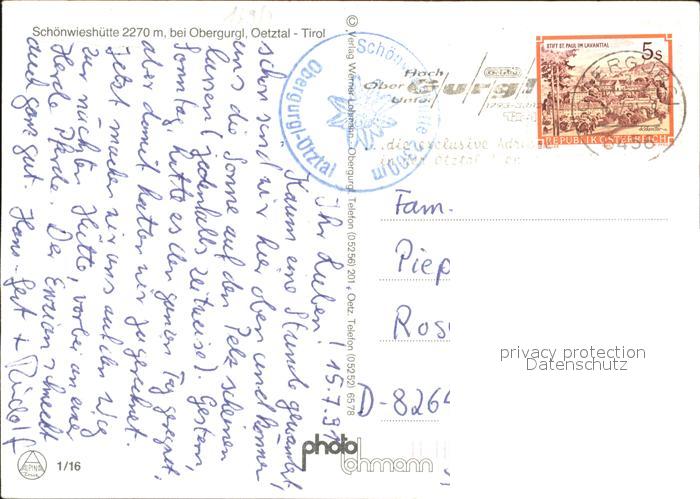 Schönwieshütte 2270 m, bei Obergurgl, Oetztal - Tirol
Ihr Lieben! 15.7.91
Kaum eine Stunde gewandert,
schon sind wir hier oben und können
uns die Sonne auf den Pelz scheinen
lassen (jedenfalls zeitweise). Gestern,
Sonntag hatte es den ganzen Tag geregnet,
aber damit hatten wir gerechnet.
Jetzt machen wir uns auf den Weg
zur nächsten Hütte, vorbei an einer
Herde Pferde. Der Enzian schmeckt
auch ganz gut. Hans-Gert + Rudolf
1/16
© Verlag Werner Lohmann - Obergurgl, Telefon (05256) 201, Oetz, Telefon (05252) 6578
photo
lohmann
Obergurgl-Ötztal
Hoch
Ober Gurgl
Unter
...die exclusive
STIFT ST. PAUL IM LAVANTTAL
5 S
REPUBLIK ÖSTERREICH
Fam.
Piep
Ros
D-8264
privacy protection
Datenschutz